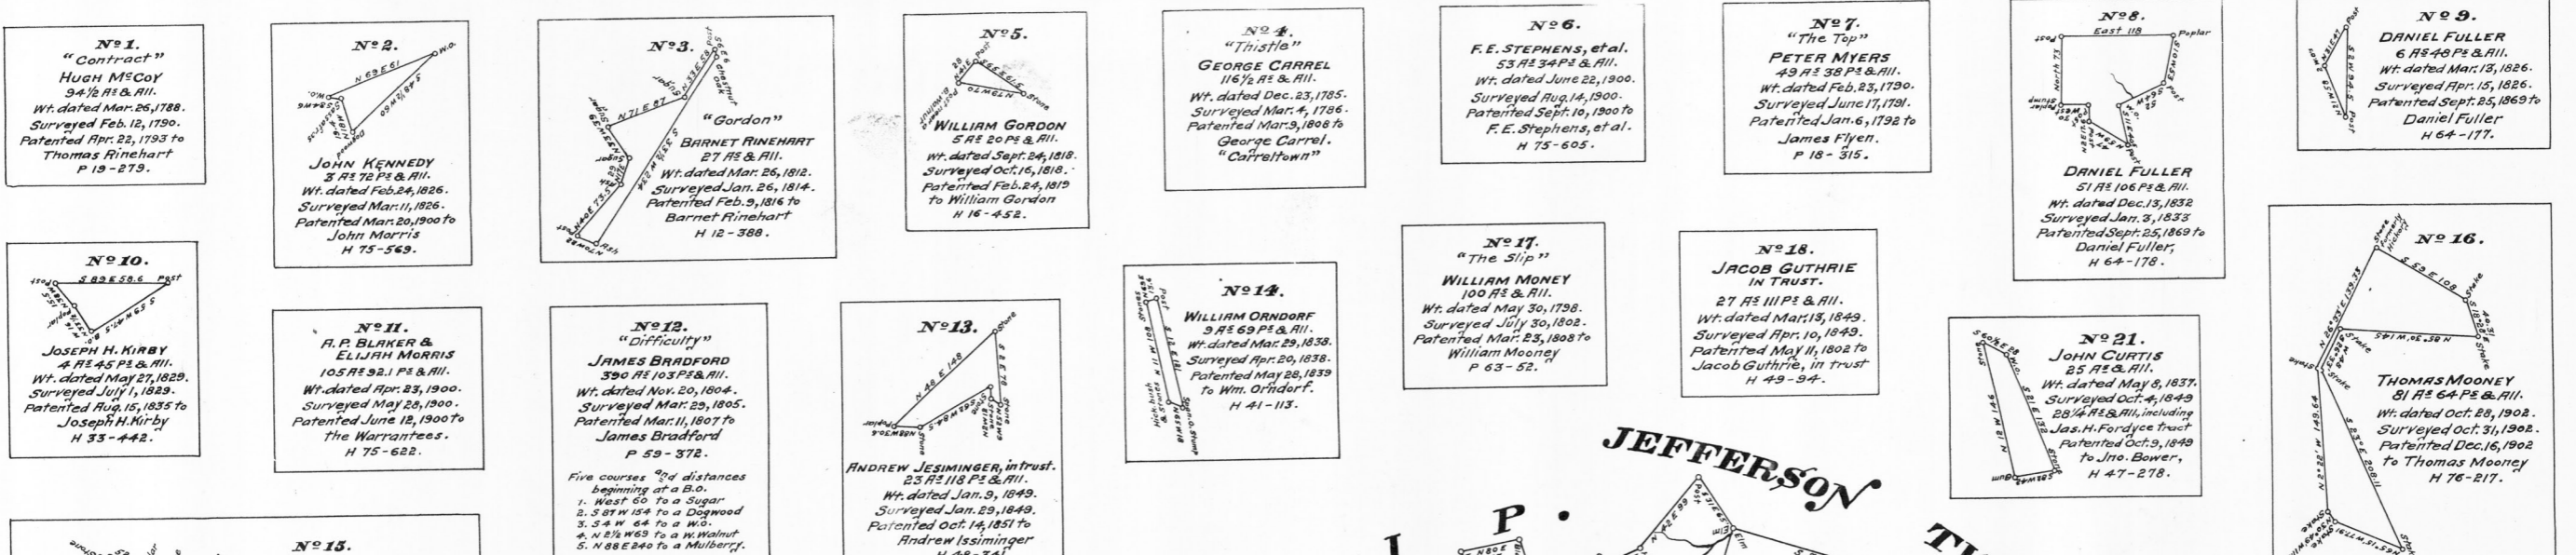 Nº 1.
"Contract"
HUGH McCOY
94½ As & All.
Wt. dated Mar. 26, 1788.
Surveyed Feb. 12, 1790.
Patented Apr. 22, 1793 to
Thomas Rinehart
P 19-279.
Nº 2.
W.O.
N 69 E 61
S 48½ W 60
W.O.
S 84 W 6
Sassafras
Dogwood
JOHN KENNEDY
3 As 72 Ps & All.
Wt. dated Feb. 24, 1826.
Surveyed Mar. 11, 1826.
Patented Mar. 20, 1900 to
John Morris
H 75-569.
Nº 3.
Post
S 6 E 6
Chestnut oak
N 33 E 58
Sugar
N 71 E 87
Sugar
Sugar
Ash
N 40 E 73.5
Post
Ash
S 31½ W 234
"Gordon"
BARNET RINEHART
27 As & All.
Wt. dated Mar. 26, 1812.
Surveyed Jan. 26, 1814.
Patented Feb. 9, 1816 to
Barnet Rinehart
H 12-388.
Nº 5.
Post
S 65 E 61.5
Stone
N 73 W 70
N 41 E 28
WILLIAM GORDON
5 As 20 Ps & All.
Wt. dated Sept. 24, 1818.
Surveyed Oct. 16, 1818.
Patented Feb. 24, 1819
to William Gordon
H 16-452.
Nº 4.
"Thistle"
GEORGE CARREL
116½ As & All.
Wt. dated Dec. 23, 1785.
Surveyed Mar. 4, 1786.
Patented Mar. 9, 1808 to
George Carrel.
"Carreltown"
Nº 6.
F.E. STEPHENS, et al.
53 As 34 Ps & All.
Wt. dated June 22, 1900.
Surveyed Aug. 14, 1900.
Patented Sept. 10, 1900 to
F.E. Stephens, et al.
H 75-605.
Nº 7.
"The Top"
PETER MYERS
49 As 38 Ps & All.
Wt. dated Feb. 23, 1790.
Surveyed June 17, 1791.
Patented Jan. 6, 1792 to
James Flyen.
P 18-315.
Nº 8.
East 118
Post
Poplar
North 73
Poplar
Stump
West
Post
Post
DANIEL FULLER
51 As 106 Ps & All.
Wt. dated Dec. 13, 1832
Surveyed Jan. 3, 1833
Patented Sept. 25, 1869 to
Daniel Fuller,
H 64-178.
Nº 9.
Post
N 31 E 47
S 2 W 94.5
N 21 W 58
Post
DANIEL FULLER
6 As 48 Ps & All.
Wt. dated Mar. 13, 1826.
Surveyed Apr. 15, 1826.
Patented Sept. 25, 1869 to
Daniel Fuller
H 64-177.
Nº 10.
Post
S 89 E 58.6
Post
S 59 W 47.5
Poplar
B.O.
JOSEPH H. KIRBY
4 As 45 Ps & All.
Wt. dated May 27, 1829.
Surveyed July 1, 1829.
Patented Aug. 15, 1835 to
Joseph H. Kirby
H 33-442.
Nº 11.
A.P. BLAKER &
ELIJAH MORRIS
105 As 92.1 Ps & All.
Wt. dated Apr. 23, 1900.
Surveyed May 28, 1900.
Patented June 12, 1900 to
the Warrantees.
H 75-622.
Nº 12.
"Difficulty"
JAMES BRADFORD
390 As 103 Ps & All.
Wt. dated Nov. 20, 1804.
Surveyed Mar. 29, 1805.
Patented Mar. 11, 1807 to
James Bradford
P 59-372.
Five courses and distances
beginning at a B.O.
1. West 60 to a Sugar
2. S 87 W 154 to a Dogwood
3. S 4 W 64 to a W.O.
4. N 2½ W 69 to a W. Walnut
5. N 88 E 240 to a Mulberry.
Nº 13.
Stone
N 48 E 148
S 2 E 78
Stone
S 62 W 84.5
Stone
Stone
N 88 W 30.6
Poplar
ANDREW JESIMINGER, in trust.
23 As 118 Ps & All.
Wt. dated Jan. 9, 1849.
Surveyed Jan. 29, 1849.
Patented Oct. 14, 1851 to
Andrew Issiminger
Nº 14.
Stones
Post
S 12 E 181
N 11 W 108
Hick. bush & Stones
Span. O. Stump
N 65 W 18
WILLIAM ORNDORF
9 As 69 Ps & All.
Wt. dated Mar. 29, 1838.
Surveyed Apr. 20, 1838.
Patented May 28, 1839
to Wm. Orndorf.
H 41-113.
Nº 17.
"The Slip"
WILLIAM MONEY
100 As & All.
Wt. dated May 30, 1798.
Surveyed July 30, 1802.
Patented Mar. 23, 1808 to
William Mooney
P 63-52.
Nº 18.
JACOB GUTHRIE
IN TRUST.
27 As 111 Ps & All.
Wt. dated Mar. 13, 1849.
Surveyed Apr. 10, 1849.
Patented May 11, 1802 to
Jacob Guthrie, in trust
H 49-94.
Nº 21.
Stone
W.O.
S 21 E 132
N 12 W 146
Stone
S 82 W 42
Gum
JOHN CURTIS
25 As & All.
Wt. dated May 8, 1837.
Surveyed Oct. 4, 1849
28¼ As & All, including
Jas. H. Fordyce tract
Patented Oct. 9, 1849
to Jno. Bower,
H 47-278.
Nº 16.
Stone formerly Hickory
S 59 E 108
Stake
Stake
N 26°33' E 139.75
N 85°30' W 145
Stake
Stake
Stake
N 2°22' W 149.64
S 23° E 208.11
THOMAS MOONEY
81 As 64 Ps & All.
Wt. dated Oct. 28, 1902.
Surveyed Oct. 31, 1902.
Patented Dec. 16, 1902
to Thomas Mooney
H 76-217.
Nº 15.
JEFFERSON
P.
Post
N 42 E 99
S 31 E 65
Elm
Elm
N 80 E